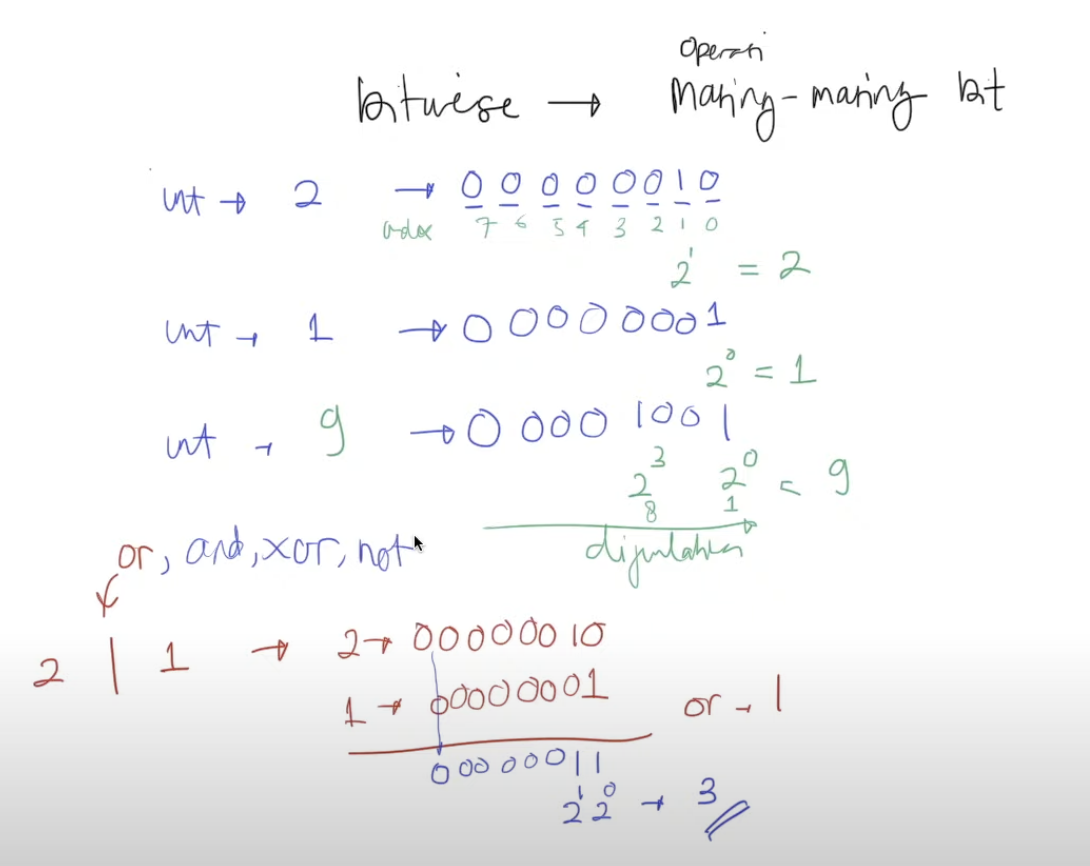 Operasi
bitwise → masing-masing bit
int → 2 → 0 0 0 0 0 0 1 0
index 7 6 5 4 3 2 1 0
2¹ = 2
int → 1 → 0 0 0 0 0 0 0 1
2⁰ = 1
int → 9 → 0 0 0 0 1 0 0 1
2³ 2⁰ = 9
8 1
dijumlahkan
or, and, xor, not
2 | 1 → 2 → 0 0 0 0 0 0 1 0
1 → 0 0 0 0 0 0 0 1 or → |
0 0 0 0 0 0 1 1
2¹ 2⁰ → 3